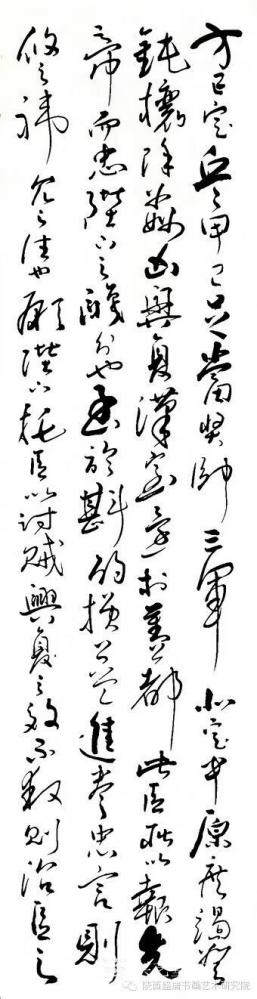 方已定兵甲已足當獎帥三軍北定中原庶竭駑
鈍攘除姦凶興復漢室還於舊都此臣所以報先
帝而忠陛下之職分也至於斟酌損益進盡忠言則
攸之禕允之任也願陛下托臣以討賊興復之效不效則治臣之
陕西盛唐书画艺术研究院